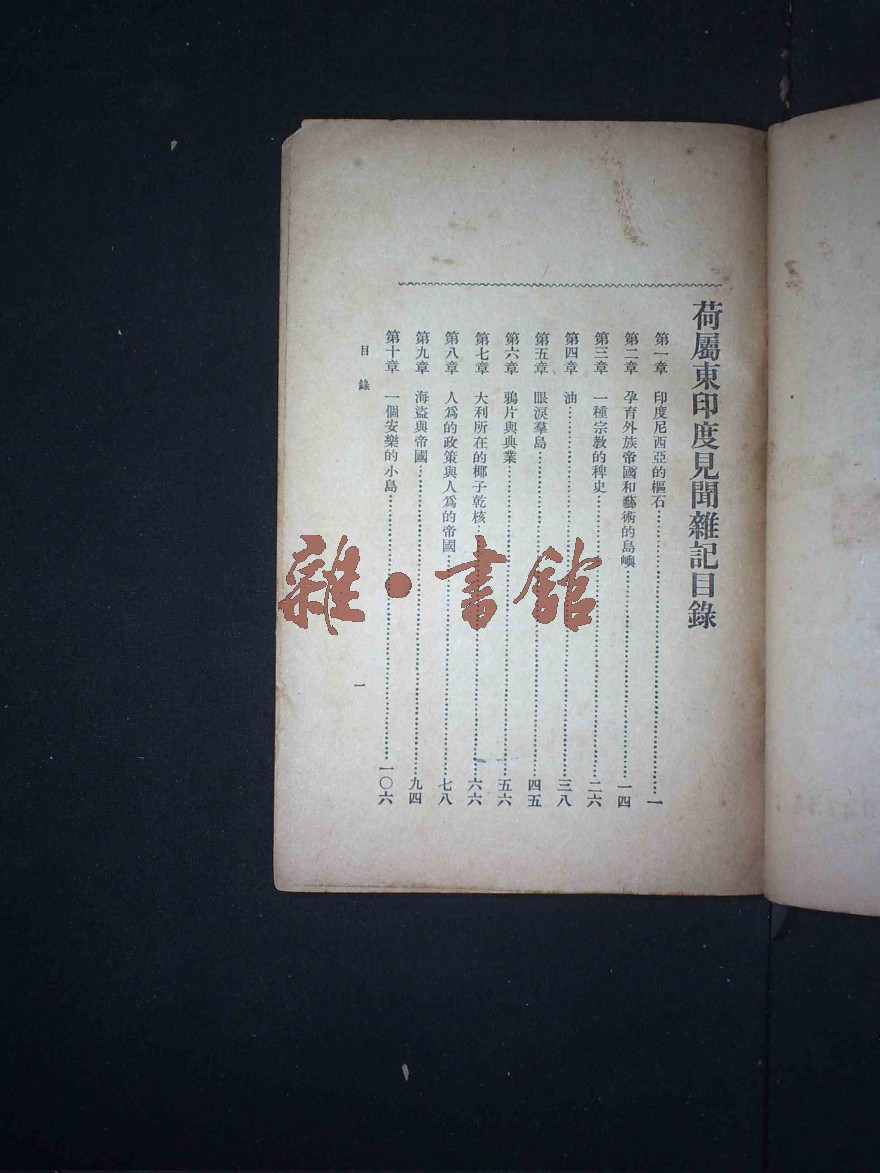 荷屬東印度見聞雜記目錄
第一章 印度尼西亞的樞石……一
第二章 孕育外族帝國和藝術的島嶼……一四
第三章 一種宗教的稗史……二六
第四章 油……三八
第五章 眼淚羣島……四五
第六章 鴉片與典業……五六
第七章 大利所在的椰子乾核……六六
第八章 人爲的政策與人爲的帝國……七八
第九章 海盜與帝國……九四
第十章 一個安樂的小島……一〇六
目錄 一
雜·書館